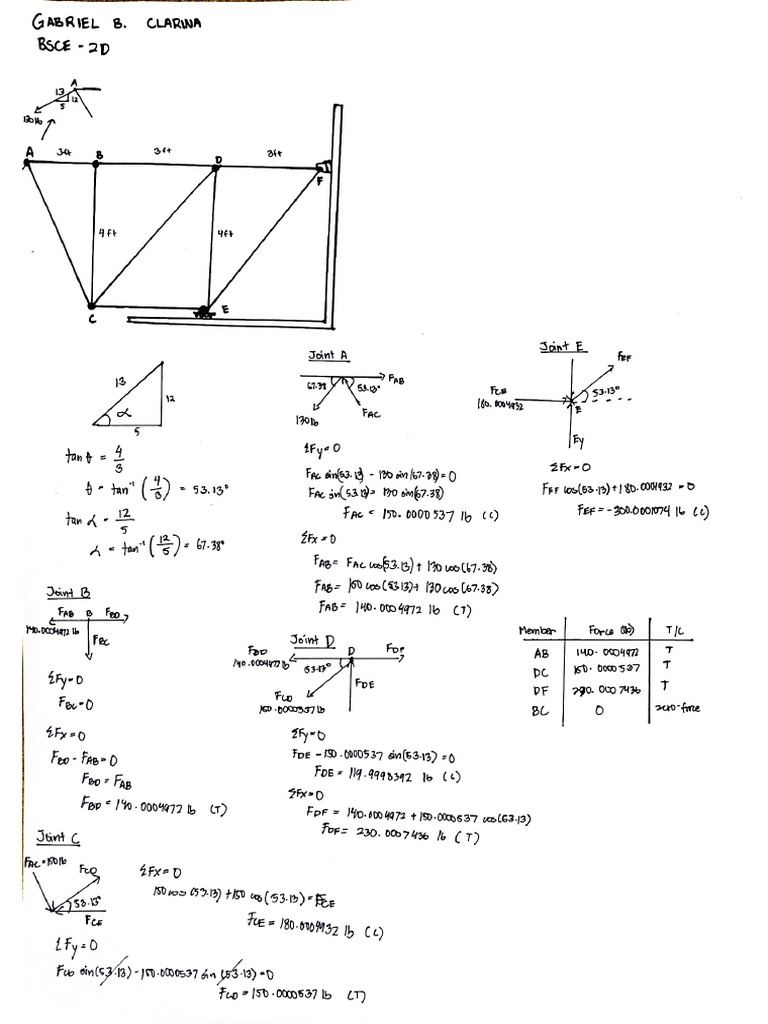 GABRIEL B. CLARINA
BSCE - 2D
A
13
12
5
130 lb
A
3ft
B
3ft
D
3ft
F
4ft
4ft
C
E
13
12
α
5
tan θ = 4/3
θ = tan⁻¹ (4/3) = 53.13°
tan α = 12/5
α = tan⁻¹ (12/5) = 67.38°
Joint A
F_AB
67.38
53.13°
130lb
F_AC
ΣFy = 0
F_AC sin(53.13) - 130 sin(67.38) = 0
F_AC sin(53.13) = 130 sin(67.38)
F_AC = 150.0000537 lb (C)
ΣFx = 0
F_AB = F_AC cos(53.13) + 130 cos(67.38)
F_AB = 150 cos(53.13) + 130 cos(67.38)
F_AB = 140.0004972 lb (T)
Joint E
F_EF
F_CE
180.0004932
53.13°
E
Ey
ΣFx = 0
F_EF cos(53.13) + 180.0004932 = 0
F_EF = -300.0001074 lb (C)
Joint B
F_AB B F_BD
140.0004972 lb
F_BC
ΣFy = 0
F_BC = 0
ΣFx = 0
F_BD - F_AB = 0
F_BD = F_AB
F_BD = 140.0004972 lb (T)
Joint D
F_BD
140.0004972 lb
D
F_DF
53.13°
F_CD
150.0000537 lb
F_DE
ΣFy = 0
F_DE - 150.0000537 sin(53.13) = 0
F_DE = 119.9998392 lb (C)
ΣFx = 0
F_DF = 140.0004972 + 150.0000537 cos(53.13)
F_DF = 230.0007436 lb (T)
Member Force (lb) T/C
AB 140.0004972 T
DC 150.0000537 T
DF 230.0007436 T
BC 0 zero-force
Joint C
F_AC = 150 lb
F_CD
53.13°
F_CE
ΣFx = 0
150 cos (53.13) + 150 cos (53.13) = F_CE
F_CE = 180.0004932 lb (C)
ΣFy = 0
F_CD sin(53.13) - 150.0000537 sin (53.13) = 0
F_CD = 150.0000537 lb (T)